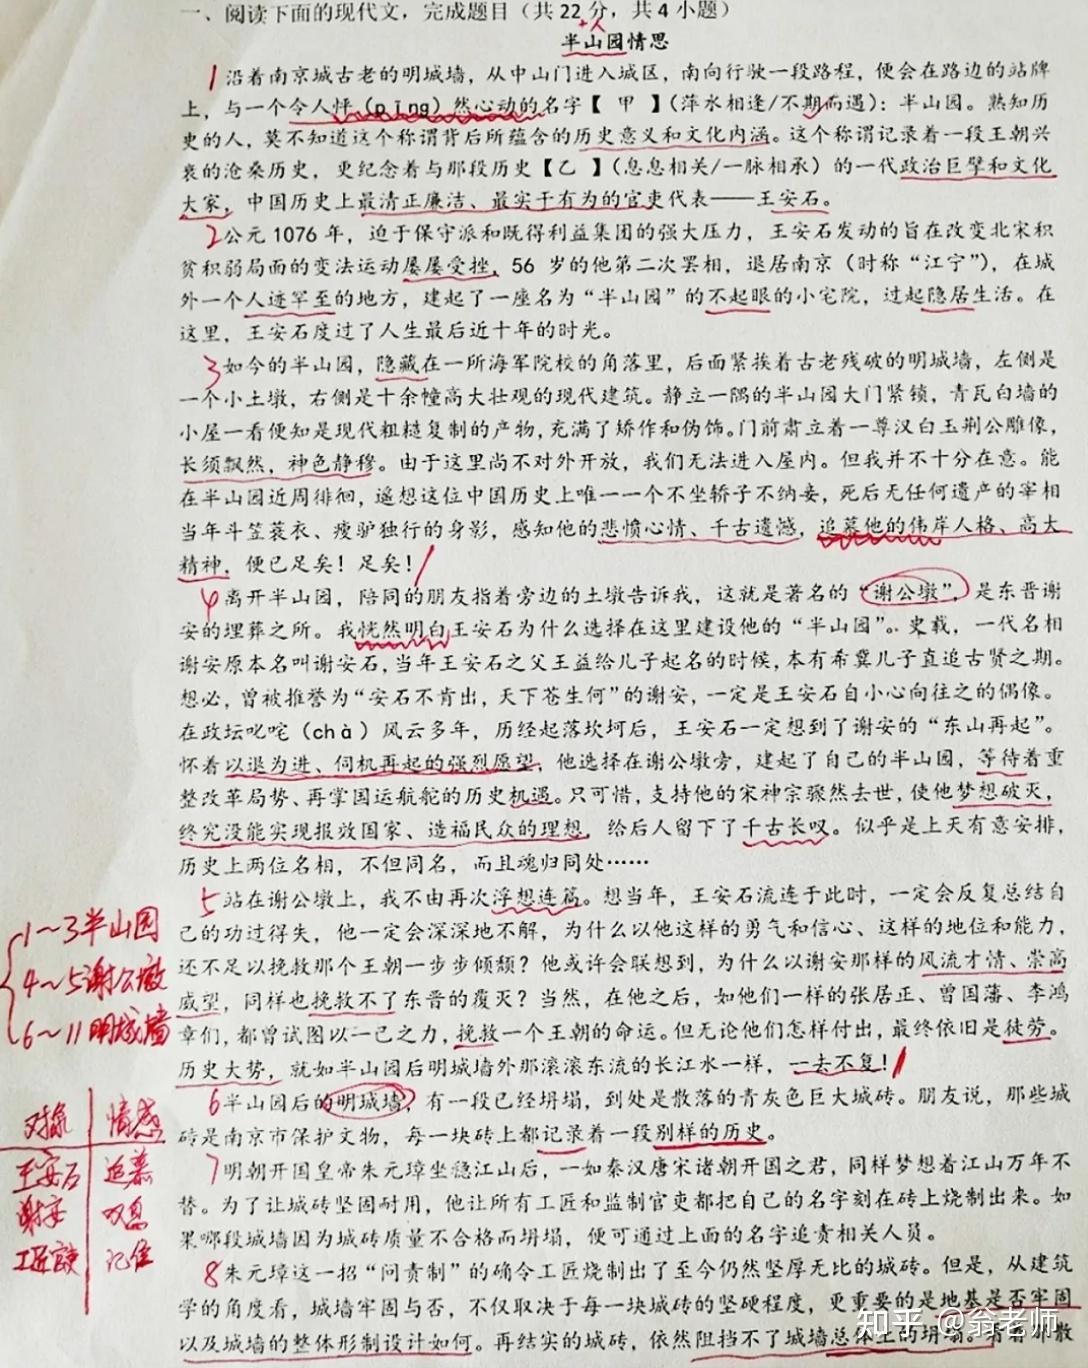 一、阅读下面的现代文，完成题目（共22分，共4小题）
半山园情思
1沿着南京城古老的明城墙，从中山门进入城区，南向行驶一段路程，便会在路边的站牌
上，与一个令人怦（pīng）然心动的名字【 甲 】（萍水相逢/不期而遇）：半山园。熟知历
史的人，莫不知道这个称谓背后所蕴含的历史意义和文化内涵。这个称谓记录着一段王朝兴
衰的沧桑历史，更纪念着与那段历史【乙 】（息息相关/一脉相承）的一代政治巨擘和文化
大家，中国历史上最清正廉洁、最实干有为的官吏代表——王安石。
2公元1076年，迫于保守派和既得利益集团的强大压力，王安石发动的旨在改变北宋积
贫积弱局面的变法运动屡屡受挫，56 岁的他第二次罢相，退居南京（时称“江宁”），在城
外一个人迹罕至的地方，建起了一座名为“半山园”的不起眼的小宅院，过起隐居生活。在
这里，王安石度过了人生最后近十年的时光。
3如今的半山园，隐藏在一所海军院校的角落里，后面紧挨着古老残破的明城墙，左侧是
一个小土墩，右侧是十余幢高大壮观的现代建筑。静立一隅的半山园大门紧锁，青瓦白墙的
小屋一看便知是现代粗糙复制的产物，充满了矫作和伪饰。门前肃立着一尊汉白玉荆公雕像，
长须飘然，神色静穆。由于这里尚不对外开放，我们无法进入屋内。但我并不十分在意。能
在半山园近周徘徊，遥想这位中国历史上唯一一个不坐轿子不纳妾，死后无任何遗产的宰相
当年斗笠蓑衣、瘦驴独行的身影，感知他的悲愤心情、千古遗憾，追慕他的伟岸人格、高大
精神，便已足矣！足矣！
4离开半山园，陪同的朋友指着旁边的土墩告诉我，这就是著名的“谢公墩”，是东晋谢
安的埋葬之所。我恍然明白王安石为什么选择在这里建设他的“半山园”。史载，一代名相
谢安原本名叫谢安石，当年王安石之父王益给儿子起名的时候，本有希冀儿子直追古贤之期。
想必，曾被推誉为“安石不肯出，天下苍生何”的谢安，一定是王安石自小心向往之的偶像。
在政坛叱咤（chà）风云多年，历经起落坎坷后，王安石一定想到了谢安的“东山再起”。
怀着以退为进、伺机再起的强烈愿望，他选择在谢公墩旁，建起了自己的半山园，等待着重
整改革局势、再掌国运航舵的历史机遇。只可惜，支持他的宋神宗骤然去世，使他梦想破灭，
终究没能实现报效国家、造福民众的理想，给后人留下了千古长叹。似乎是上天有意安排，
历史上两位名相，不但同名，而且魂归同处……
5站在谢公墩上，我不由再次浮想连篇。想当年，王安石流连于此时，一定会反复总结自
己的功过得失，他一定会深深地不解，为什么以他这样的勇气和信心、这样的地位和能力，
还不足以挽救那个王朝一步步倾颓？他或许会联想到，为什么以谢安那样的风流才情、崇高
威望，同样也挽救不了东晋的覆灭？当然，在他之后，如他们一样的张居正、曾国藩、李鸿
章们，都曾试图以一己之力，挽救一个王朝的命运。但无论他们怎样付出，最终依旧是徒劳。
历史大势，就如半山园后明城墙外那滚滚东流的长江水一样，一去不复！
6半山园后的明城墙，有一段已经坍塌，到处是散落的青灰色巨大城砖。朋友说，那些城
砖是南京市保护文物，每一块砖上都记录着一段别样的历史。
7明朝开国皇帝朱元璋坐稳江山后，一如秦汉唐宋诸朝开国之君，同样梦想着江山万年不
替。为了让城砖坚固耐用，他让所有工匠和监制官吏都把自己的名字刻在砖上烧制出来。如
果哪段城墙因为城砖质量不合格而坍塌，便可通过上面的名字追责相关人员。
8朱元璋这一招“问责制”的确令工匠烧制出了至今仍然坚厚无比的城砖。但是，从建筑
学的角度看，城墙牢固与否，不仅取决于每一块城砖的坚硬程度，更重要的是地基是否牢固
以及城墙的整体形制设计如何。再结实的城砖，依然阻挡不了城墙总体上的坍塌。看着那散
1～3半山园
4～5谢公墩
6～11明城墙
对象 情感
王安石 追慕
谢安 叹息
工匠官吏 记住
知乎 @翁老师